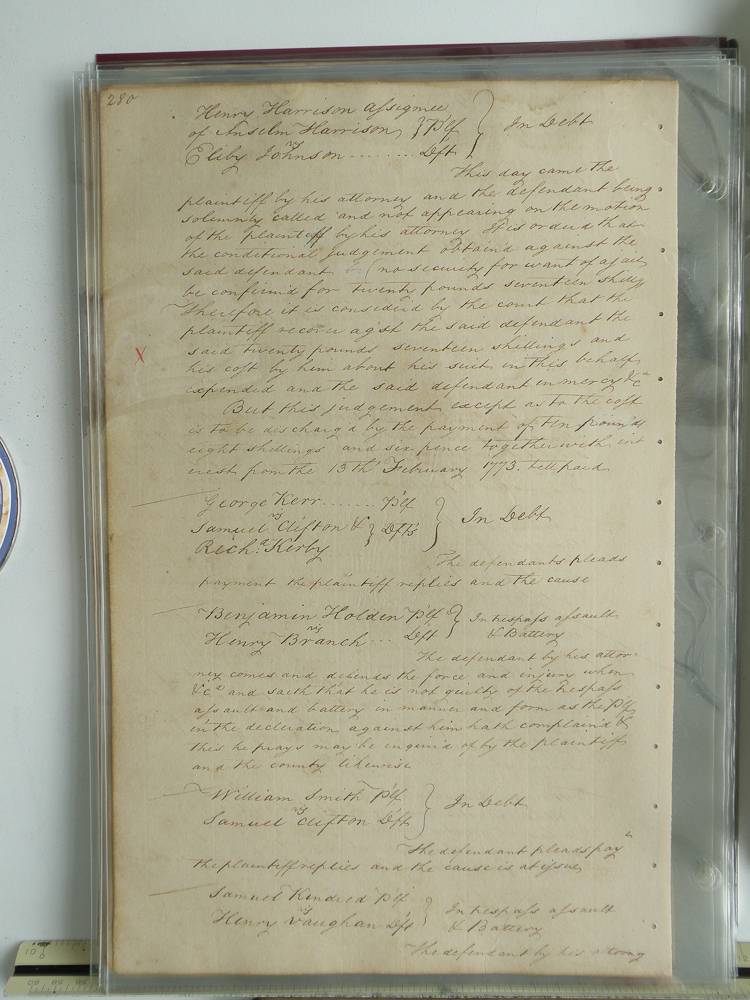 280
Henry Harrison assignee
of Anselm Harrison } Plf } In Debt
vs
Eliby Johnson ........ Dft
This day came the
plaintiff by his attorney and the defendant being
solemnly called and not appearing on the motion
of the plaintiff by his attorney It is orderd that
the conditional judgement obtaind against the
said defendant (no security for want of a jail
be confirmd for twenty pounds seventeen shillgs
Therefore it is considerd by the court that the
plaintiff recover agst the said defendant the
said twenty pounds seventeen shillings and
his cost by him about his suit in this behalf
expended and the said defendant in mercy &ca
X
But this judgement except as to the cost
is to be dischargd by the payment of ten pounds
eight shillings and six pence together with int
erest from the 13th February 1773. till paid
George Kerr ...... Plf
vs
Samuel Clifton & } Dfts } In Debt
Richd. Kirby
The defendants pleads
payment the plaintiff replies and the cause
Benjamin Holden Plf } In trespass assault
vs
Henry Branch ... Dft & Battery
The defendant by his attor-
ney comes and defends the force and injury when
&ca and saith that he is not guilty of the trespass
assault and battery in manner and form as the Plf
in the decleration against him hath complaind &
this he prays may be inquird of by the plaintiff
and the county likewise
William Smith Plf } In Debt
vs
Samuel Clifton Dft
The defendant pleads pay
the plaintiff replies and the cause is at issue
Samuel Kindred Plf } In trespass assault
vs
Henry Vaughan Dft & Battery
The defendant by his attorny